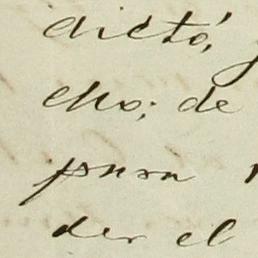 dictó,
ello; de
para
der el